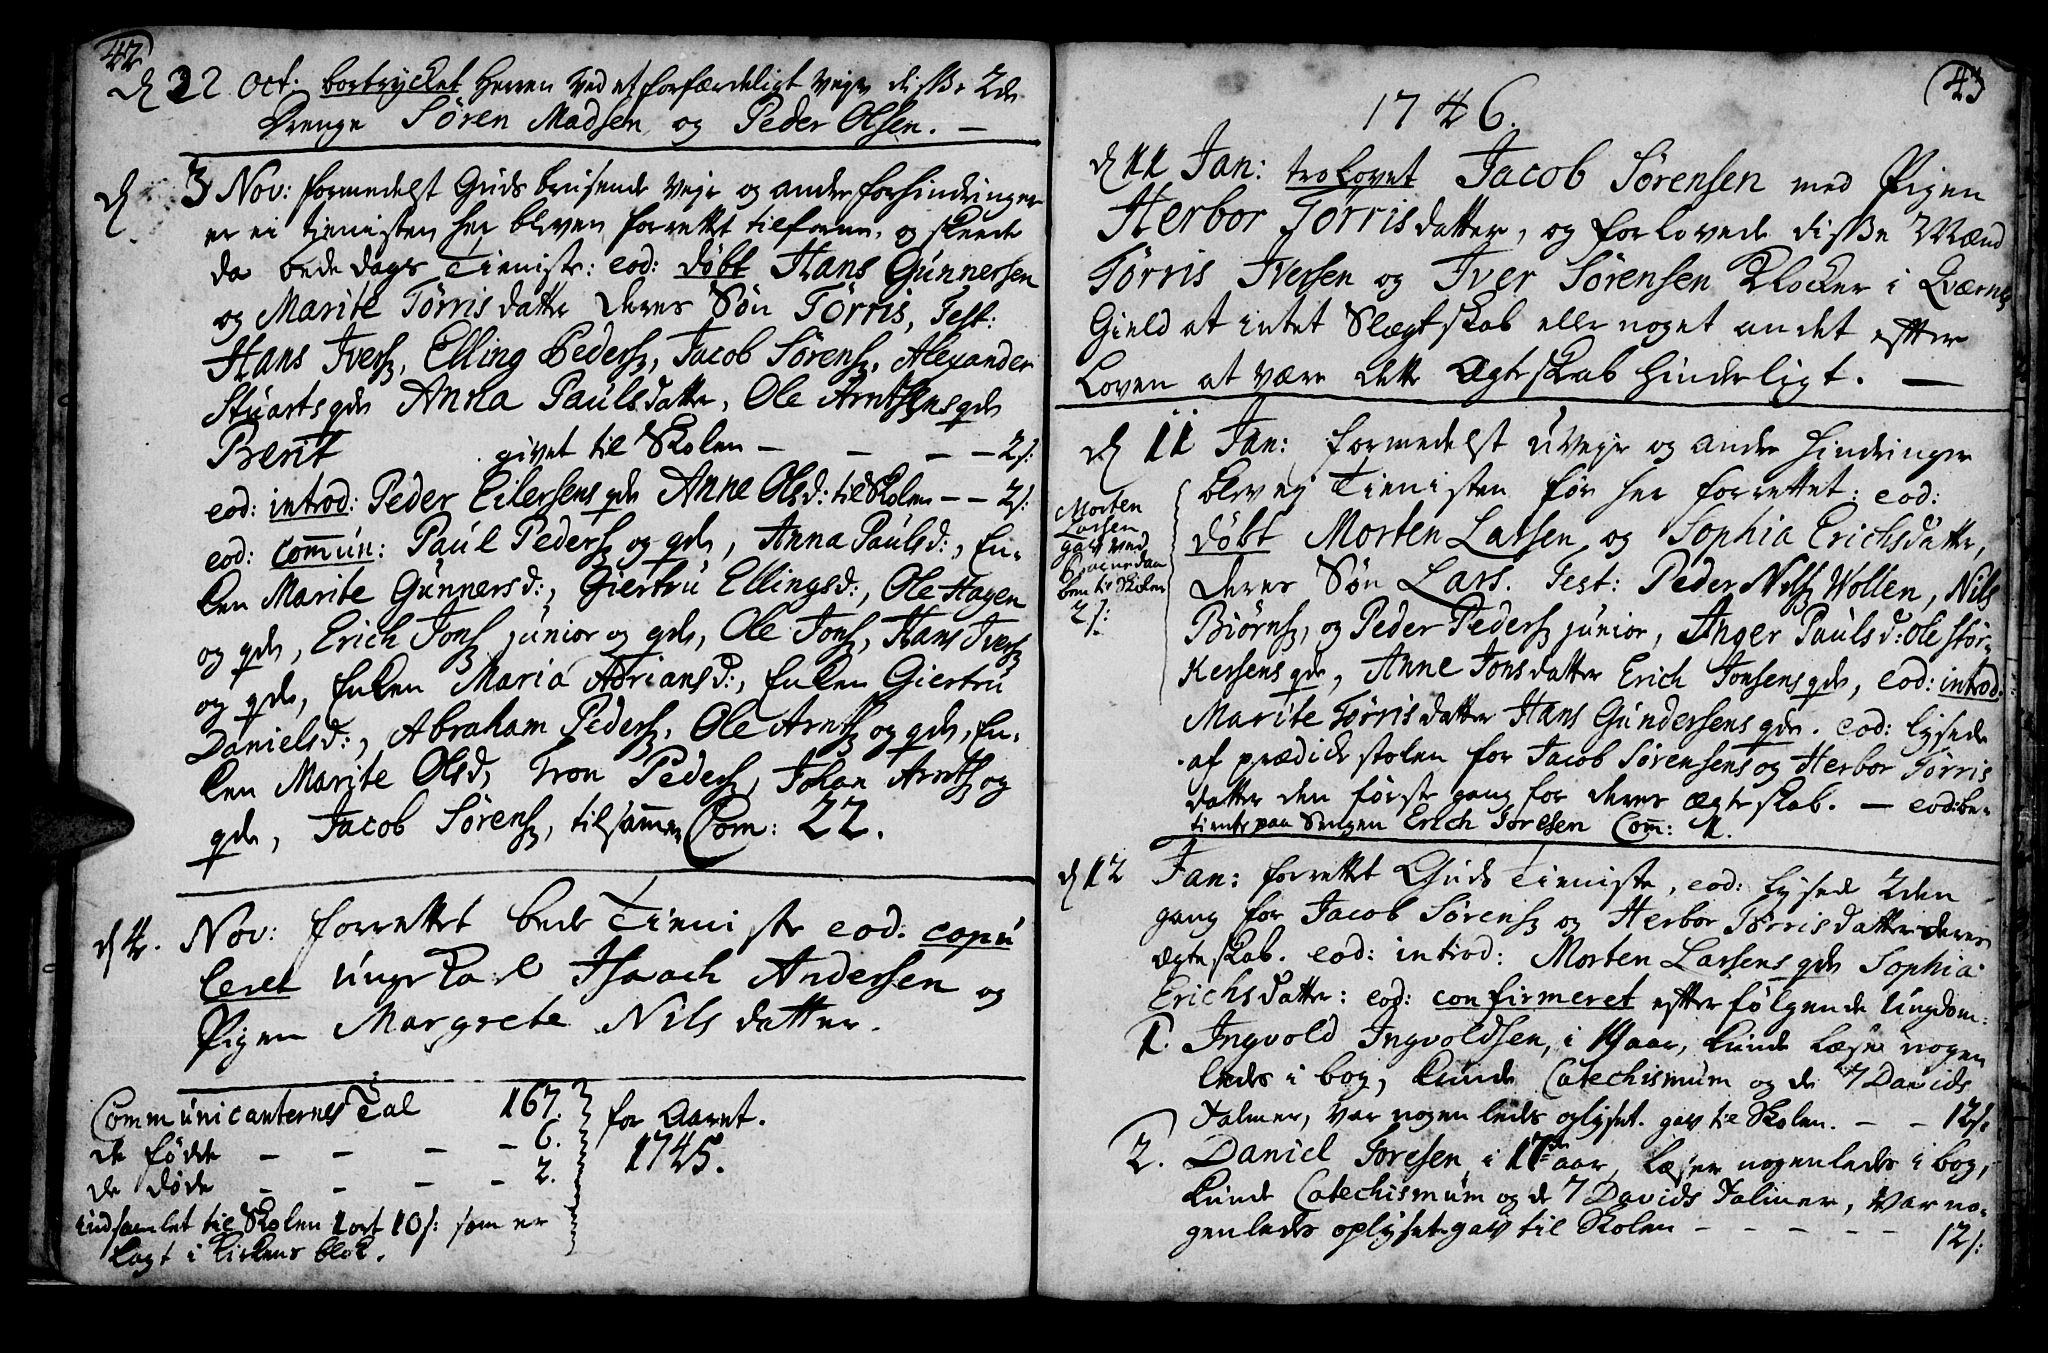 42
d 22 Oct. bortrycket Herren ved et forfærdeligt Vejr disse 2de
Drenge Søren Madsen og Peder Olsen. —
d 3 Nov: formedelst Guds brusende Vejr og andre forhindringer
er ei tienisten her bleven forrettet tilforn, og skeede
da bededags Tieniste: eod: døbt Hans Gunnersen
og Marite Tørrisdatter deres Søn Tørris, Test:
Hans Ivers, Elling Peders, Jacob Sørens, Alexander
Stuarts qde Anna Paulsdatter, Ole Arntsens qde
Berit givet til Skolen — — — — 2 s:
eod: introd: Peder Eilersens qde Anne Olsd: til Skolen — — 2 s:
eod: comun: Paul Peders og qde, Anna Paulsd:, En-
ken Marite Gunnersd:, Giertru Ellingsd:, Ole Hagen
og qde, Erich Jons junior og qde, Ole Jons, Hans Ivers
og qde, Enken Maria Adriansd:, Enken Giertru
Danielsd:, Abraham Peders, Ole Arnts og qde, En-
ken Marite Olsd, Tron Peders, Johan Arnts og
qde, Jacob Sørens, tilsamen Com: 22.
d 4. Nov: forrettet bede Tieniste eod. copu
leret Ungr Karl Isaach Andersen og
Pigen Margrete Nilsdatter.
Communicanternes Tal 167. for Aaret.
de fødte — — — — 6. 1745.
de døde — — — — 2.
indsamlet til Skolen 1 ort 10 s: som er
lagt i Kirkens blok.
43
1746.
d 11 Jan: troLovet Jacob Sørensen med Pigen
Herbor Tørrisdatter, og forlovede disse 2 Mænd
Tørris Iversen og Iver Sørensen Klocker i Qværnes
Gield at intet Slægtskab eller noget andet efter
Loven at være dette Ægteskab hinderligt. —
d 11 Jan: formedelst uvejr og andre hindringer
blev ej Tienisten før her forrettet: eod:
Morten
Larsen
gav ved
til Skolen
2 s:
døbt Morten Larsen og Sophia Erichsdatter,
deres Søn Lars. Test: Peder Nils Wollen, Nils
Biørns, og Peder Peders junior, Anger Paulsd: Ole Stør-
kersens qde, Anne Jonsdatter Erich Jonsens qde, eod: introd:
Marite Tørrisdatter Hans Gundersens qde. eod: lysede
af prædickestolen for Jacob Sørensens og Herbor Tørris
datter den første gang for deres Ægteskab. — eod: be-
tiente paa Sengen Erich Toresen Com: 1.
d 12 Jan: forrettet Guds Tieniste, eod: lysede 2den
gang for Jacob Sørens og Herbor Tørrisdatter deres
Ægteskab. eod: introd: Morten Larsens qde Sophia
Erichsdatter: eod: confirmeret efterfølgende Ungdom:
1. Ingvold Ingvoldsen, i 19 aar, kunde læse nogen
leds i bog, kunde Catechismum og de 7 Davids
Salmer, var nogenleds oplyset. gav til Skolen. — — 12 s:
2. Daniel Toresen, i 17de aar, læser nogenleds i bog,
kunde Catechismum og de 7 Davids Salmer, var no-
genleds oplyset gav til Skolen — — — — — 12 s: